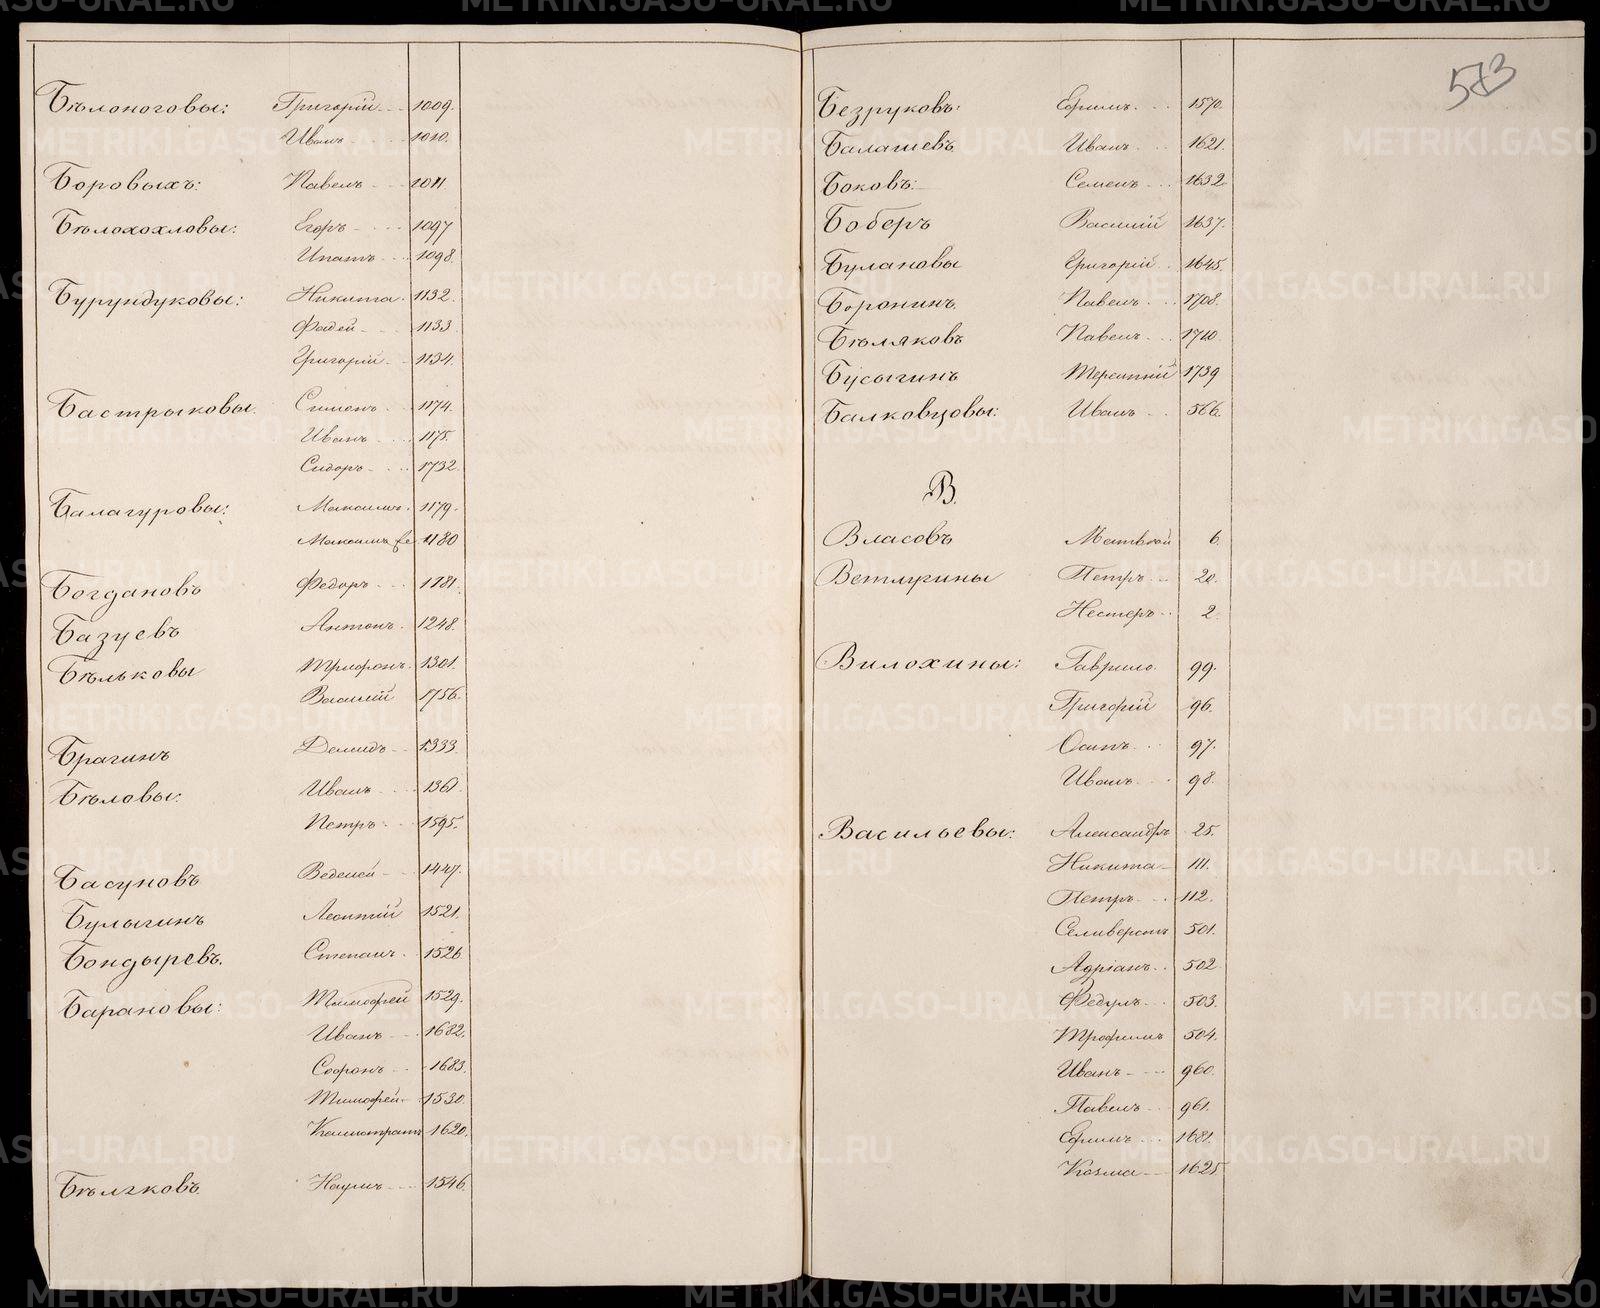 Бѣлоноговы: Григорій 1009.
Иванъ 1010.
Боровыхъ: Павелъ 1011
Бѣлохохловы: Егоръ 1097
Ипатъ 1098.
Бурундуковы: Никита 1132.
Фадей 1133
Григорій 1134.
Бастрыковы. Симонъ 1174.
Иванъ 1175.
Сидоръ 1732.
Балагуровы: Максимъ 1179.
Максимъ же 1180
Богдановъ Федоръ 1181.
Базуевъ Антонъ 1248.
Бѣльковы Трифонъ 1301.
Василій 1756.
Брагинъ Демидъ 1333.
Бѣловы: Иванъ 1361.
Петръ 1595.
Басуновъ Веденей 1447.
Булыгинъ Леонтій 1521.
Бондыревъ. Степанъ 1526
Барановы: Тимофей 1529.
Иванъ 1682.
Софонъ 1683.
Тимофей 1530.
Каллистратъ 1620.
Наумъ 1546.
573
Безруковъ: Ефимъ 1570.
Балашевъ Иванъ 1621.
Боковъ: Семенъ 1632.
Боберъ Василій 1637.
Булановы Григорій 1645.
Боронинъ. Павелъ 1708.
Бѣляковъ Павелъ 1710.
Бусыгинъ Терентій 1739
Балковцовы: Иванъ 566.
В.
Власовъ Матвѣй 6.
Ветлугины Петръ 20.
Нестеръ 2.
Вилохины: Гаврило 99.
Григорій 96.
Осипъ 97.
Иванъ 98.
Васильевы: Александръ 25.
Никита 111.
Петръ 112.
Селиверстъ 501.
Адріанъ 502
Федулъ 503.
Трофимъ 504.
Иванъ 960.
Павелъ 961.
Ефимъ 1681.
Козма 1625.
METRIKI.GASO-URAL.RU